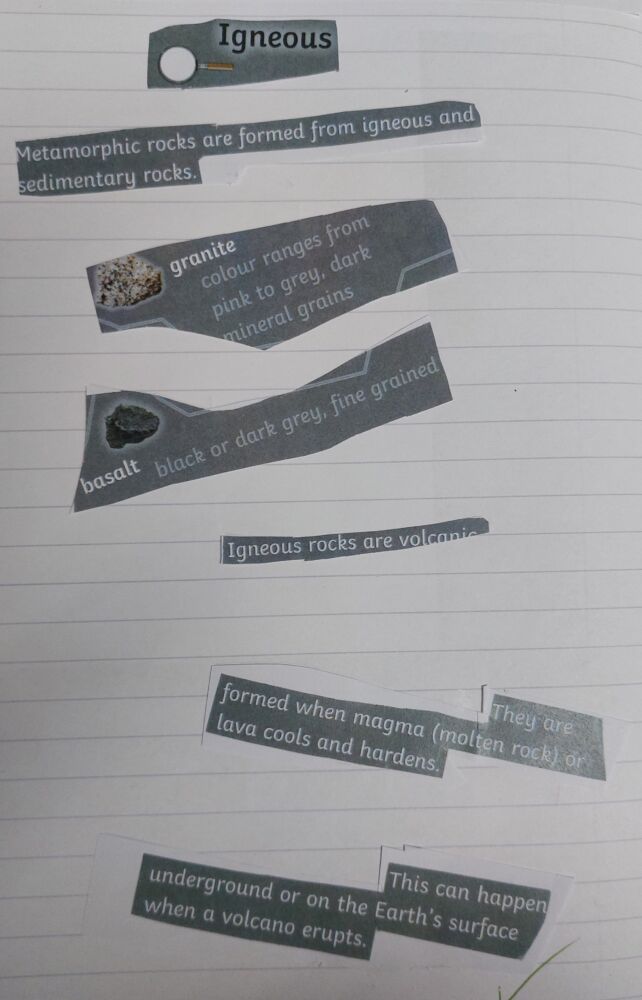 Igneous
Metamorphic rocks are formed from igneous and
sedimentary rocks.
granite
colour ranges from
pink to grey, dark
mineral grains
basalt
black or dark grey, fine grained
Igneous rocks are volcanic
They are
formed when magma (molten rock) or
lava cools and hardens.
This can happen
underground or on the Earth's surface
when a volcano erupts.